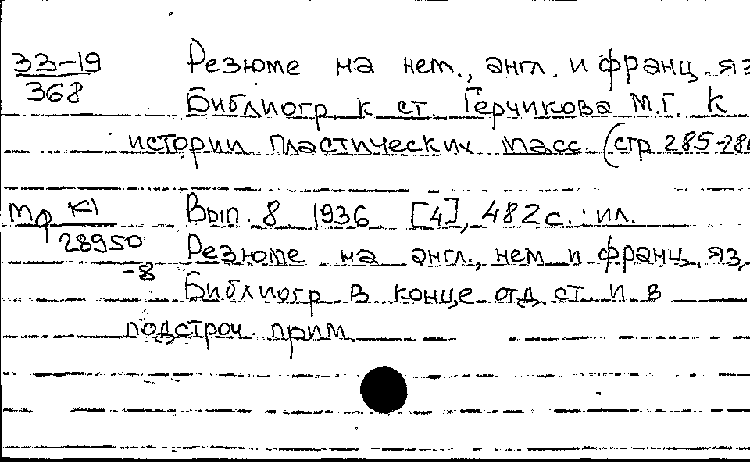 33-19 Резюме на нем., англ. и франц. яз
368
Библиогр к ст Герчикова М.Г. К
истории пластических масс (стр 285-286
Мф К1 Вып. 8 1936 [4], 482 с. : ил.
28950
Резюме на англ., нем и франц. яз,
-8
Библиогр в конце отд ст и в
подстроч прим